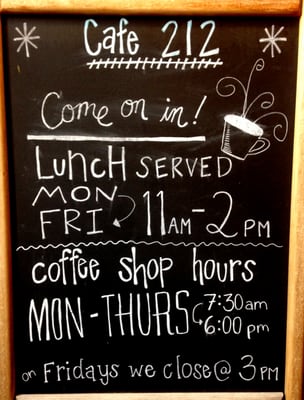 Cafe 212
Come on in!
LUNCH SERVED
MON
FRI 11AM-2PM
coffee shop hours
MON-THURS 7:30am
6:00 pm
on Fridays we close@ 3PM